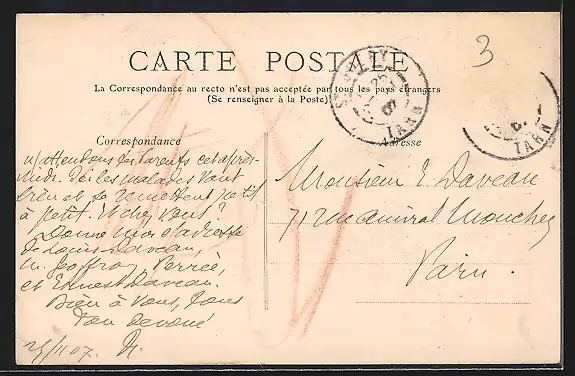 3
CARTE POSTALE
La Correspondance au recto n'est pas acceptée par tous les pays étrangers
(Se renseigner à la Poste)
25
07
TARN
TARN
Correspondance
Adresse
n/ attendons les Parents cet après-
midi. Ici les malades vont
bien et se remettent petit
à petit. Et chez vous ?
Donne moi l'adresse
de Louis Daveau,
M. Geoffroy Perrée,
et Ernest Daveau.
Bien à vous, tous
Ton dévoué
25/11 07. H.
Monsieur E. Daveau
71 rue amiral Mouchez
Paris.